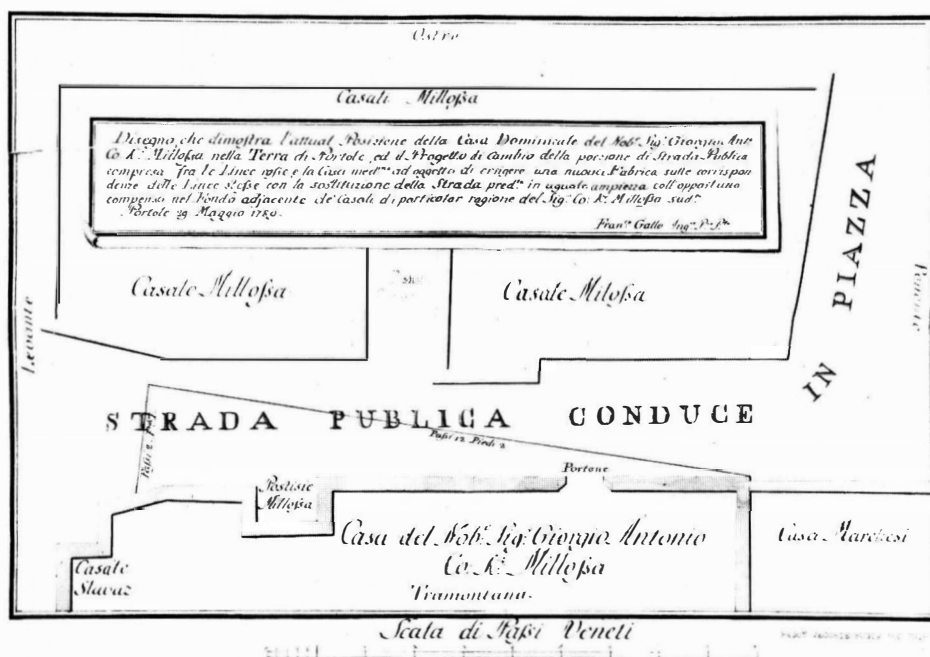 Ostro
Casali Milloſsa
Disegno che dimoſtra l'attual Posizione della Casa Dominicale del Nobe. Sigr. Giorgio Anto
Co. Kr. Milloſsa nella Terra di Portole, ed il Progetto di Cambio della porzione di Strada Publica
compresa fra le Linee roſse e la Casa medma. ad oggetto di eriggere una nuova Fabrica sulle corrispon
denze delle Linee steſse con la sostituzione della Strada predta. in uguale ampiezza coll'opportuno
compenso nel Fondo adjacente de' Casali di particolar ragione del Sigr. Co. Kr. Milloſsa sudo.
Portole 29 Maggio 1780.
Franco. Gallo Ingr. Po. Po.
Casale Milloſsa
Casale Miloſsa
Levante
Ponente
IN PIAZZA
STRADA PUBLICA CONDUCE
Paſsi 12 Piedi 2
Paſsi 2
Portone
Milloſsa
Casa del Nobe. Sigr. Giorgio Antonio
Co. Kr. Milloſsa
Tramontana.
Casa Marchesi
Casale
Slavaz
Scala di Paſsi Veneti